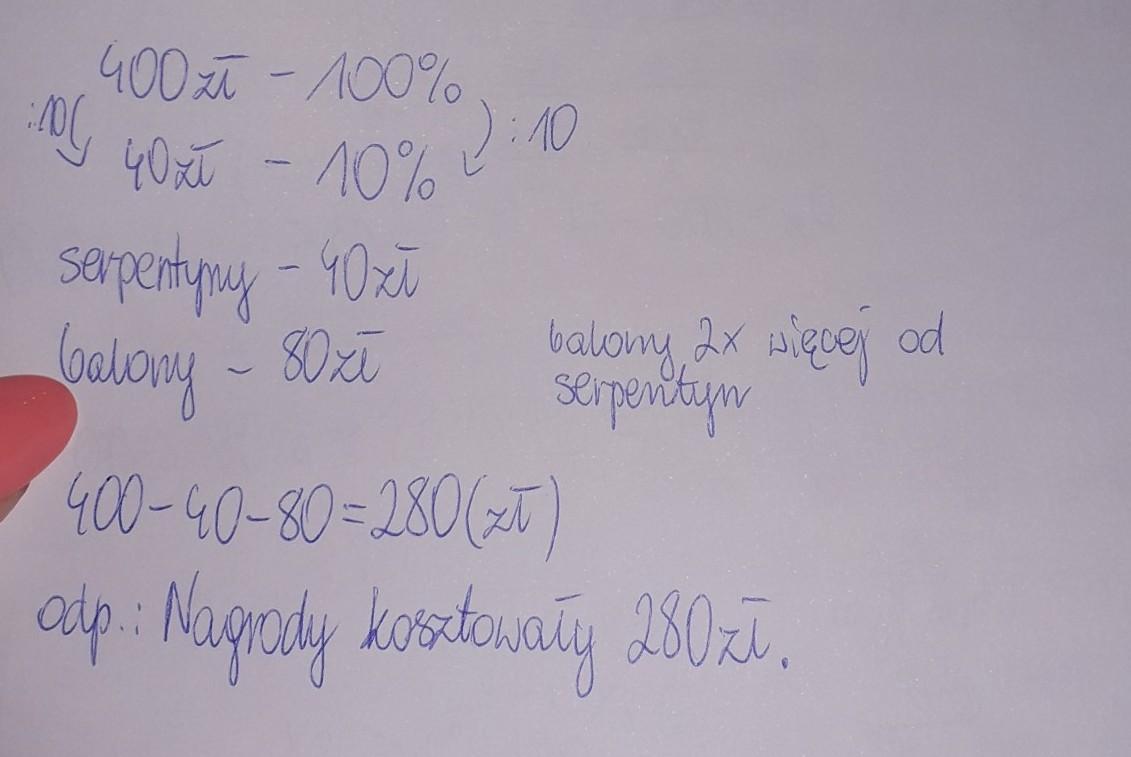 400zł - 100%
:10 :10
40zł - 10%
serpentyny - 40zł
balony - 80zł
balony 2x więcej od
serpentyn
400-40-80=280(zł)
odp.: Nagrody kosztowały 280zł.